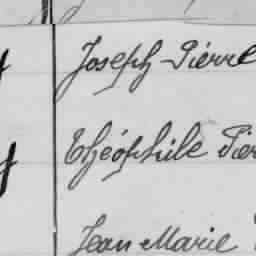 Joseph Pierre
Théophile Pier
Jean Marie